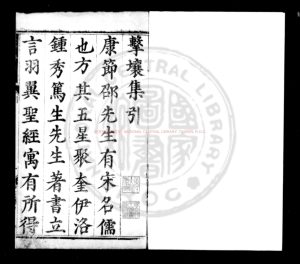 擊壤集引
康節邵先生有宋名儒
也方其五星聚奎伊洛
鍾秀篤生先生著書立
言羽翼聖經寓有所得